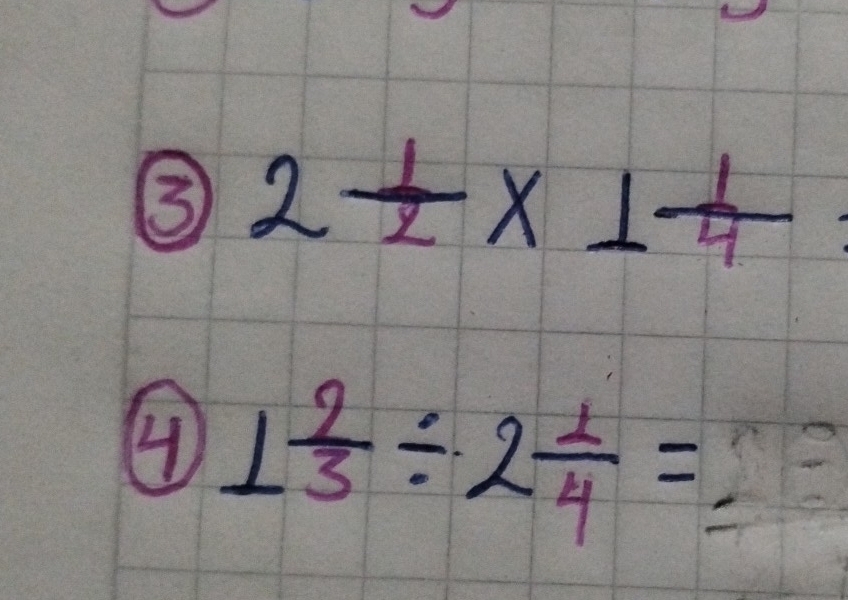 ③ 2 1/2 X 1 1/4 =
④ 1 2/3 ÷ 2 1/4 =